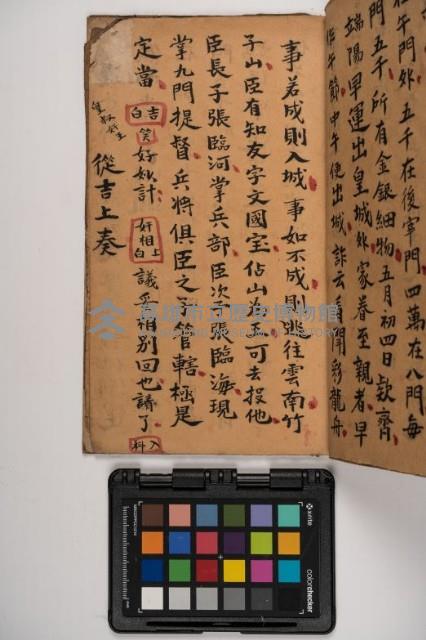 在午門外五千在後宰門四萬在八門每
門五千所有金銀細物五月初四日欵齊
端陽早運出皇城外家眷至親者早
午節中午便出城詐云看鬧彩龍舟
事若成則入城事如不成則逃往雲南竹
子山臣有知友字文國宝佔山為王可去投他
臣長子張臨河掌兵部臣次子張臨海現
掌九門提督兵將俱臣之子管轄極是
定當 吉白 笑 好妙計 奸相上白 議妥相別回也請了 入科
從吉上奏
高雄市立歷史博物館
KAOHSIUNG MUSEUM OF HISTORY
x-rite
colorchecker